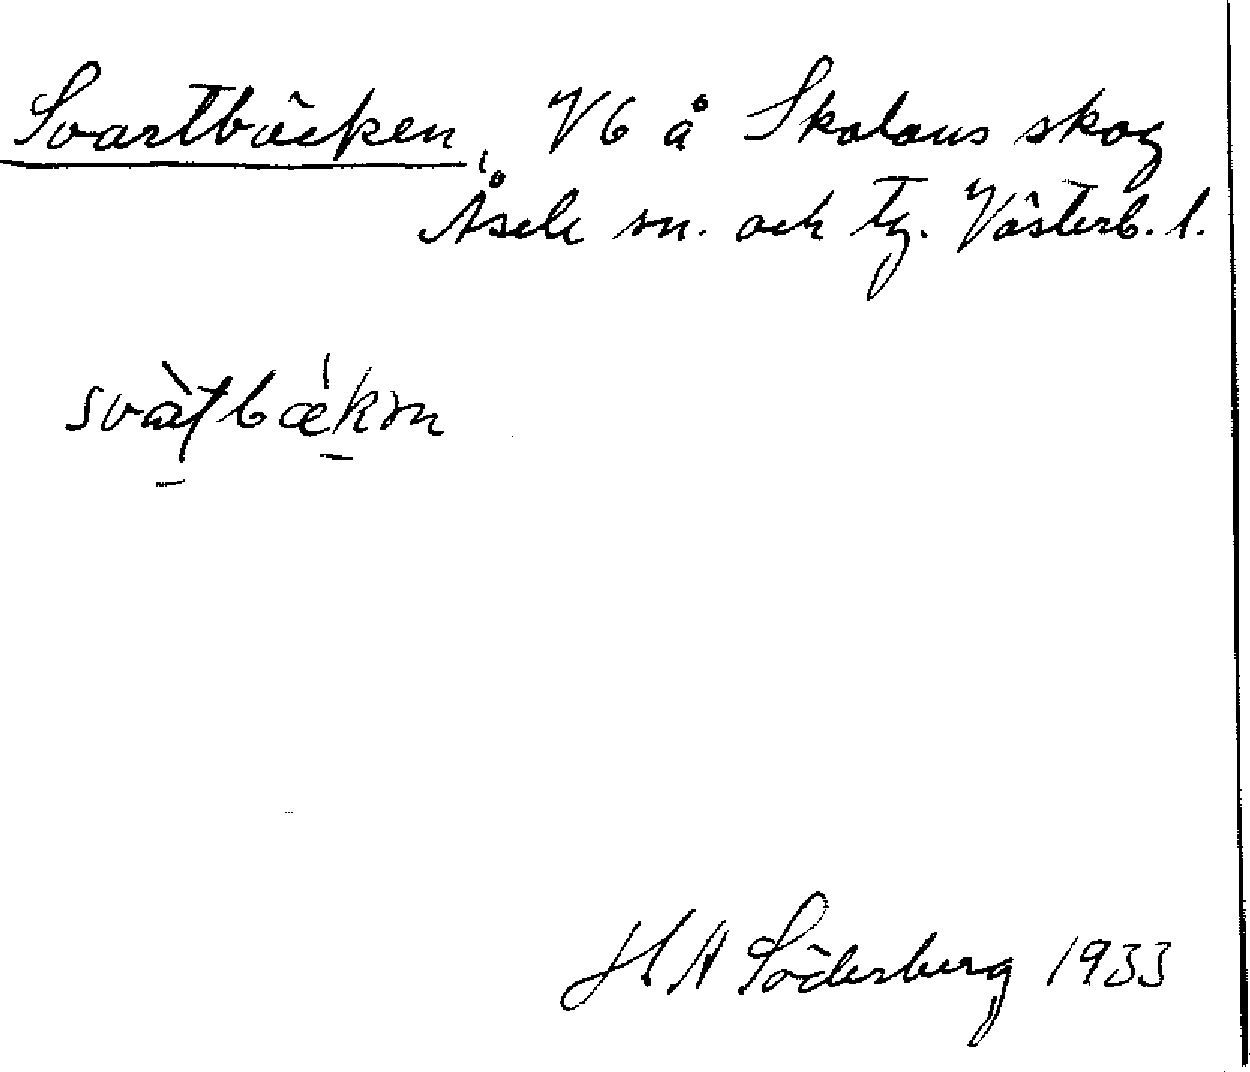 Svartbäcken, V6 å Skalans skog
Åsele sn. och tg. Västerb. l.
H A Söderberg 1933